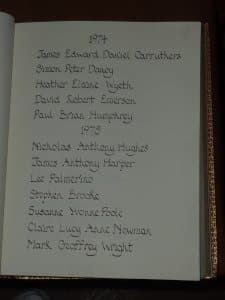 1974
James Edward Daniel Carruthers
Simon Peter Dancy
Heather Elaine Wyeth
David Robert Emerson
Paul Brian Humphrey
1975
Nicholas Anthony Hughes
James Anthony Harper
Lee Palmerino
Stephen Brooke
Susanne Yvonne Poole
Claire Lucy Anne Nowman
Mark Geoffrey Wright